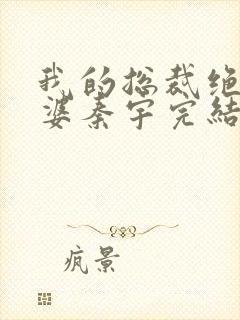 我的总裁绝
婆秦宇完结
疯景